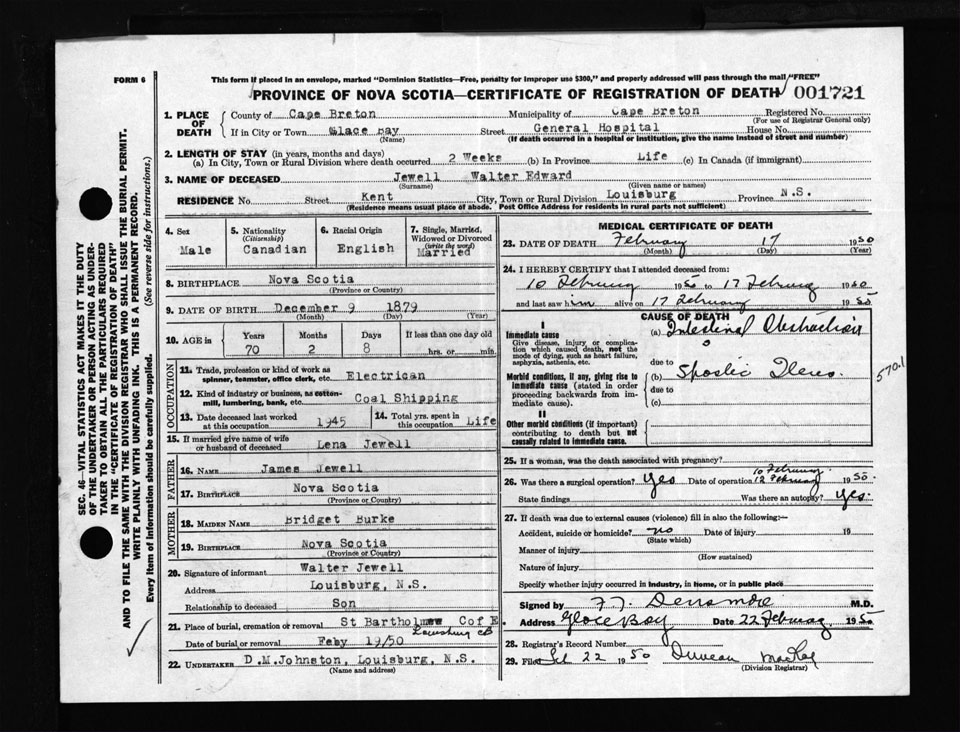 FORM 6
This form if placed in an envelope, marked "Dominion Statistics—Free, penalty for improper use $300," and properly addressed will pass through the mail "FREE"
PROVINCE OF NOVA SCOTIA—CERTIFICATE OF REGISTRATION OF DEATH 001721
1. PLACE OF DEATH County of Cape Breton Municipality of Cape Breton Registered No.
(For use of Registrar General only)
If in City or Town Glace Bay Street General Hospital House No.
(Name) (If death occurred in a hospital or institution, give the name instead of street and number)
2. LENGTH OF STAY (in years, months and days)
(a) In City, Town or Rural Division where death occurred 2 Weeks (b) In Province Life (c) In Canada (if immigrant)
3. NAME OF DECEASED Jewell Walter Edward
(Surname) (Given name or names)
RESIDENCE No. Street Kent City, Town or Rural Division Louisburg Province N.S.
(Residence means usual place of abode. Post Office Address for residents in rural parts not sufficient)
4. Sex Male
5. Nationality (Citizenship) Canadian
6. Racial Origin English
7. Single, Married, Widowed or Divorced (write the word) Married
8. BIRTHPLACE Nova Scotia
(Province or Country)
9. DATE OF BIRTH December 9 1879
(Month) (Day) (Year)
10. AGE in Years Months Days If less than one day old
70 2 8 hrs. or min.
OCCUPATION
11. Trade, profession or kind of work as spinner, teamster, office clerk, etc. Electrican
12. Kind of industry or business, as cotton-mill, lumbering, bank, etc. Coal Shipping
13. Date deceased last worked at this occupation 1945
14. Total yrs. spent in this occupation Life
15. If married give name of wife or husband of deceased Lena Jewell
FATHER
16. NAME James Jewell
17. BIRTHPLACE Nova Scotia
(Province or Country)
MOTHER
18. MAIDEN NAME Bridget Burke
19. BIRTHPLACE Nova Scotia
(Province or Country)
20. Signature of informant Walter Jewell
Address Louisburg, N.S.
Relationship to deceased Son
21. Place of burial, cremation or removal St Bartholmew C of E
Louisburg CB
Date of burial or removal Feby 19/50
22. UNDERTAKER D.M.Johnston, Louisburg, N.S.
(Name and address)
MEDICAL CERTIFICATE OF DEATH
23. DATE OF DEATH February 17 1950
(Month) (Day) (Year)
24. I HEREBY CERTIFY that I attended deceased from:
10 February 1950 to 17 February 1950
and last saw him alive on 17 February 1950
CAUSE OF DEATH
I
Immediate cause
Give disease, injury or complication which caused death, not the mode of dying, such as heart failure, asphyxia, asthenia, etc.
(a) Intestinal Obstruction
due to
Morbid conditions, if any, giving rise to immediate cause (stated in order proceeding backwards from immediate cause).
(b) Spastic Ileus.
due to
(c)
570.1
II
Other morbid conditions (if important) contributing to death but not causally related to immediate cause.
25. If a woman, was the death associated with pregnancy?
26. Was there a surgical operation? Yes Date of operation 10 February
12 February 1950
State findings Was there an autopsy? Yes.
27. If death was due to external causes (violence) fill in also the following:—
Accident, suicide or homicide? no Date of injury 19
(State which)
Manner of injury
(How sustained)
Nature of injury
Specify whether injury occurred in industry, in home, or in public place
Signed by F. J. Densmore M.D.
Address Glace Bay Date 22 February 1950
28. Registrar's Record Number
29. Filed Feb 22 1950 Duncan MacKay
(Division Registrar)
SEC. 46—VITAL STATISTICS ACT MAKES IT THE DUTY
OF THE UNDERTAKER OR PERSON ACTING AS UNDER-
TAKER TO OBTAIN ALL THE PARTICULARS REQUIRED
IN THE "CERTIFICATE OF REGISTRATION OF DEATH"
AND TO FILE THE SAME WITH THE DIVISION REGISTRAR WHO SHALL ISSUE THE BURIAL PERMIT.
WRITE PLAINLY WITH UNFADING INK. THIS IS A PERMANENT RECORD.
Every item of Information should be carefully supplied. (See reverse side for instructions.)